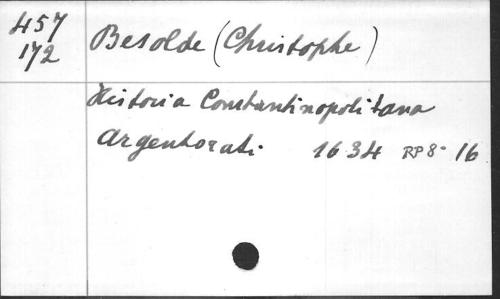 457
172
Besolde (Christophe)
Historia Constantinopolitana
Argentorati 1634 RP 8- 16